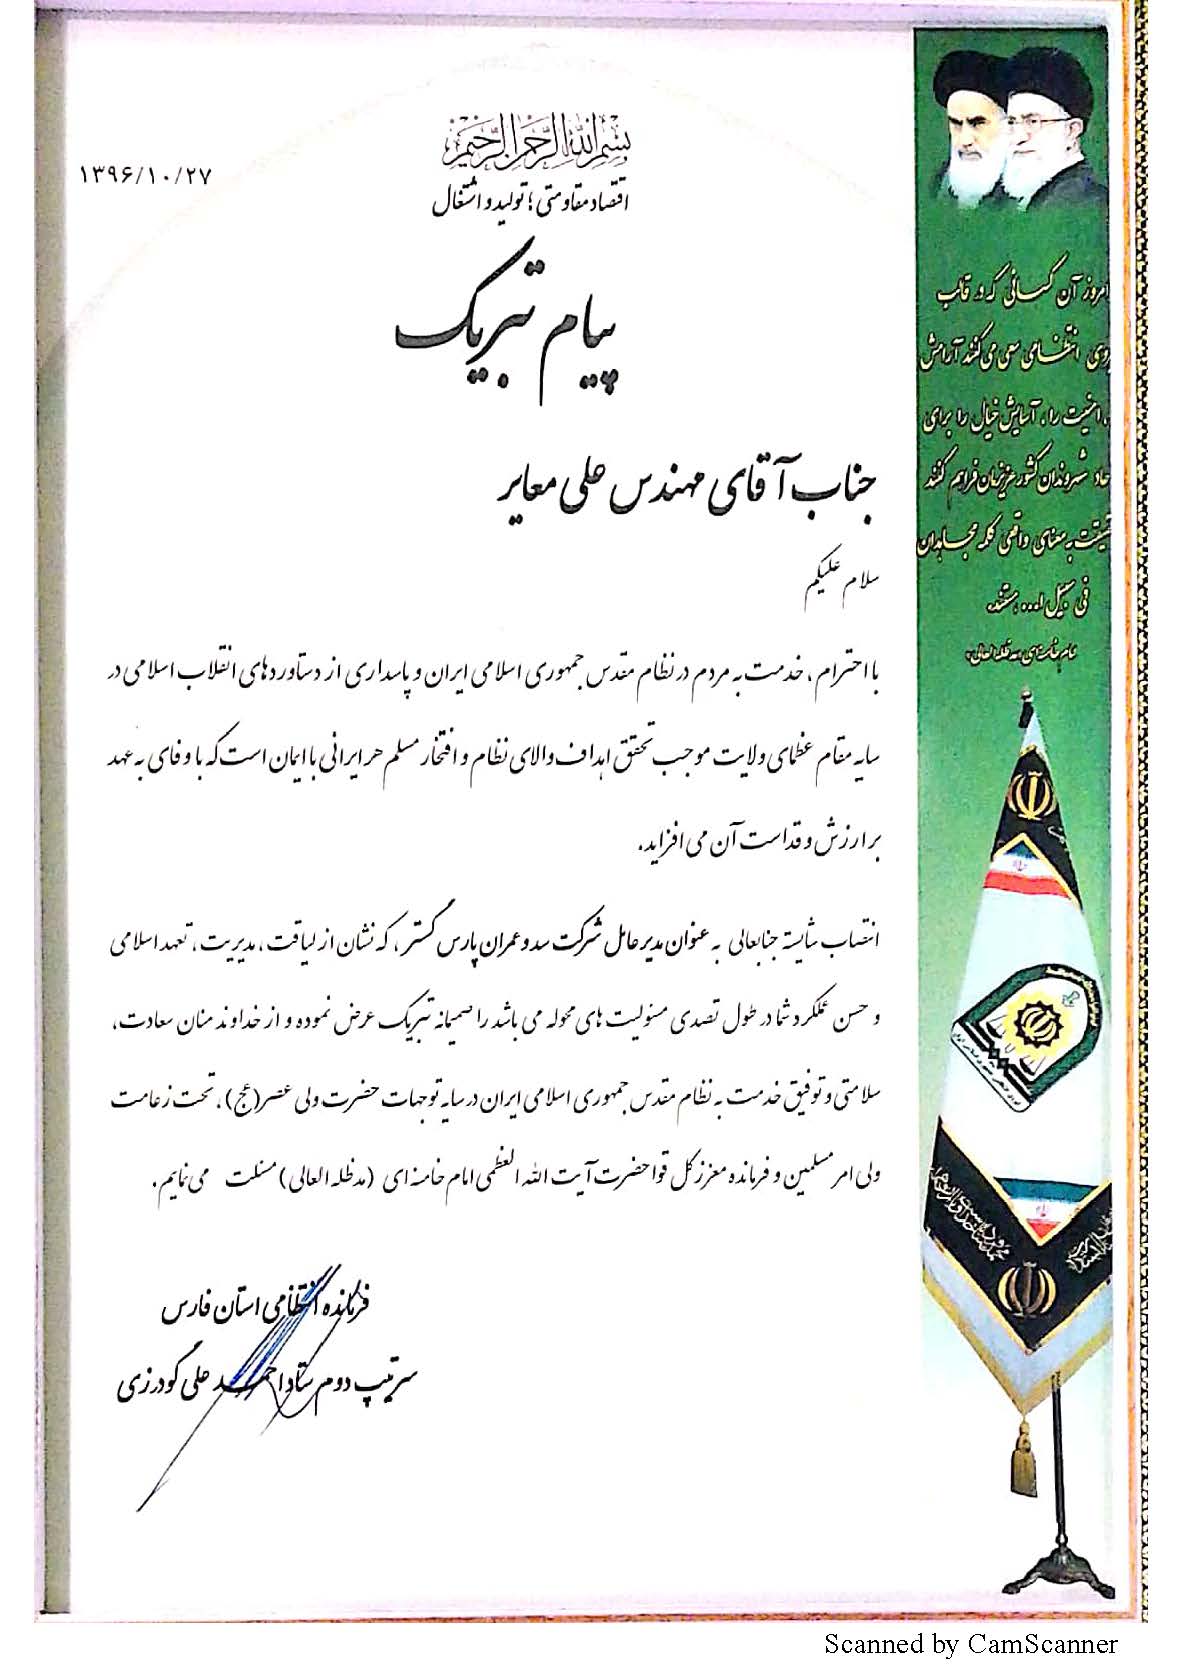 بسم الله الرحمن الرحیم
۱۳۹۶/۱۰/۲۷
اقتصاد مقاومتی؛ تولید و اشتغال
پیام تبریک
جناب آقای مهندس علی معایر
سلام علیکم
با احترام، خدمت به مردم در نظام مقدس جمهوری اسلامی ایران و پاسداری از دستاوردهای انقلاب اسلامی در
سایه مقام عظمای ولایت موجب تحقق اهداف والای نظام و افتخار مسلم هر ایرانی با ایمان است که با وفای به عهد
بر ارزش و قداست آن می افزاید.
انتصاب شایسته جنابعالی به عنوان مدیر عامل شرکت سد و عمران پارس گستر، که نشان از لیاقت، مدیریت، تعهد اسلامی
و حسن عملکرد شما در طول تصدی مسئولیت های محوله می باشد را صمیمانه تبریک عرض نموده و از خداوند منان سعادت،
سلامتی و توفیق خدمت به نظام مقدس جمهوری اسلامی ایران در سایه توجهات حضرت ولی عصر(عج)، تحت زعامت
ولی امر مسلمین و فرمانده معزز کل قوا حضرت آیت الله العظمی امام خامنه ای (مدظله العالی) مسئلت می نمایم.
فرمانده انتظامی استان فارس
سرتیپ دوم ستاد احمد علی گودرزی
امروز آن کسانی که در قالب
روی انتظامی سعی می کنند آرامش
، امنیت را، آسایش خیال را برای
حاد شهروندان کشور عزیزمان فراهم کنند
به معنای واقعی کلمه مجاهدان
فی سبیل ا... هستند.
امام خامنه ای مدظله العالی
Scanned by CamScanner